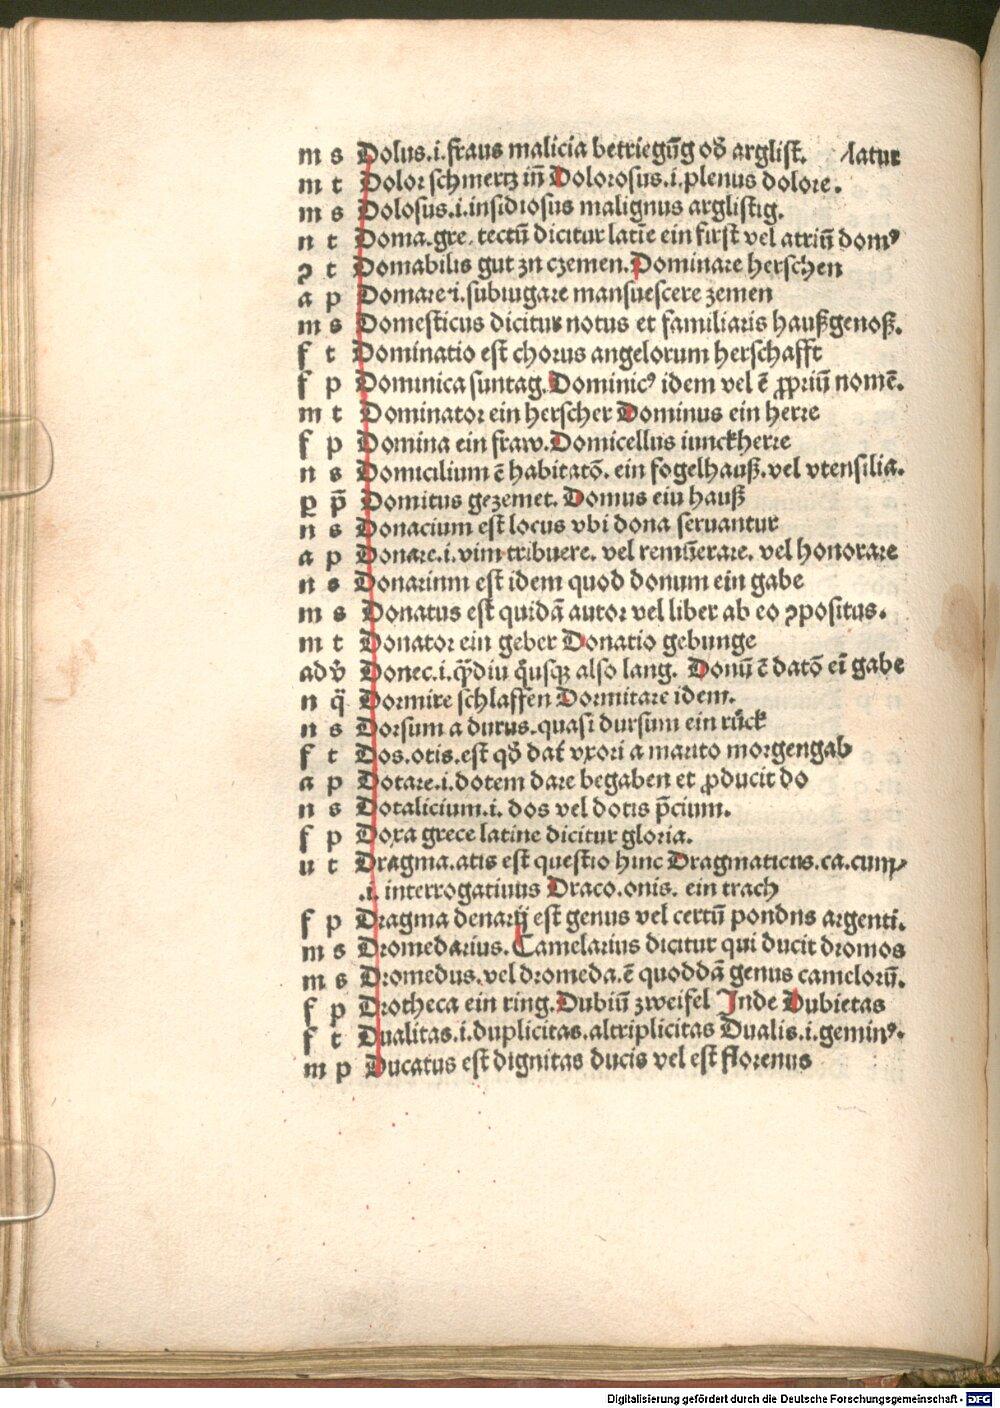 m s Dolus.i.fraus malicia betriegūg od̄ arglist. /latur
m t Dolor schmertz iñ Dolorosus.i.plenus dolore.
m s Dolosus.i.insidiosus malignus arglistig.
n t Doma.gre. tectū dicitur latīe ein first vel atriū domꝰ
ꝯ t Domabilis gut zn czemen. Dominare herschen
a p Domare.i.subiugare mansuescere zemen
m s Domesticus dicitur notus et familiaris haußgenoß.
f t Dominatio est chorus angelorum herschafft
f p Dominica suntag. Dominicꝰ idem vel ē ꝓpriū nomē.
m t Dominator ein herscher Dominus ein herre
f p Domina ein fraw. Domicellus iunckherre
n s Domicilium ē habitatō. ein fogelhauß.vel vtensilia.
ꝑ p̄ Domitus gezemet. Domus eiu hauß
n s Donacium est locus vbi dona seruantur
a p Donare.i.vim tribuere. vel remūerare. vel honorare
n s Donarinm est idem quod donum ein gabe
m s Donatus est quidā autor vel liber ab eo ꝯpositus.
m t Donator ein geber Donatio gebunge
adv̄ Donec.i.qͣdiu qͣusqꝫ also lang. Donū ē datō eī gabe
n q̈ Dormire schlaffen Dormitare idem.
n s Dorsum a durus.quasi dursum ein ruͤck
f t Dos.otis.est qd̄ dat̄ vxori a marito morgengab
a p Dotare.i.dotem dare begaben et ꝓducit do
n s Dotalicium.i. dos vel dotis p̄cium.
f p Doxa grece latine dicitur gloria.
u t Dragma.atis est questio hinc Dragmaticus.ca.cum.
.i. interrogatiuus Draco.onis. ein trach
f p Dragma denarij est genus vel certū pondns argenti.
m s Dromedarius. Camelarius dicitur qui ducit dromos
m s Dromedus.vel dromeda.ē quoddā genus camelorū.
f p Drotheca ein ring. Dubiū zweifel Inde Dubietas
f t Dualitas.i.duplicitas.altriplicitas Dualis.i.geminꝰ.
m p Ducatus est dignitas ducis vel est florenus
Digitalisierung gefördert durch die Deutsche Forschungsgemeinschaft - DFG